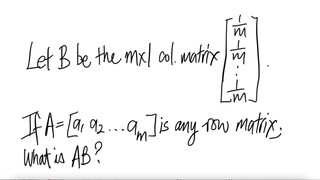 Let B be the mx1 col. matrix [1/m 1/m ⋮ 1/m].
If A = [a₁ a₂ ... aₘ] is any row matrix,
what is AB?